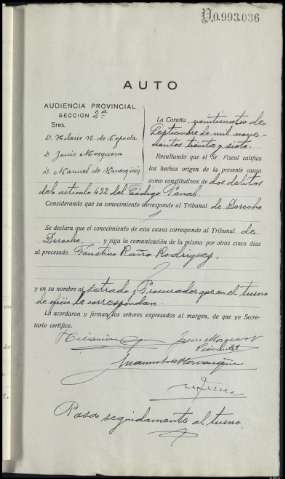 0.993.036
AUTO
AUDIENCIA PROVINCIAL
SECCION 2ª
Sres.
D. Hilario N. de Cepeda
D. Jesús Mosquera
D. Manuel de
La Coruña veintiuatro de
Septiembre de mil nove-
cientos treinta y siete.
Resultando que el Sr Fiscal califica
los hechos origen de la presente causa
como constitutivos de dos delitos
del artículo 432 del Código Penal.
Considerando que su conocimiento corresponde al Tribunal de Derecho
Se declara que el conocimiento de esta causa corresponde al Tribunal de
Derecho, y siga la comunicación de la misma por otros cinco días
al procesado Faustino Rodríguez
y en su nombre al Letrado Procurador que en el turno
de oficio le correspondan.
Lo acordaron y firman los señores expresados al margen, de que yo Secre-
tario certifico.
Pasa seguidamente al turno.